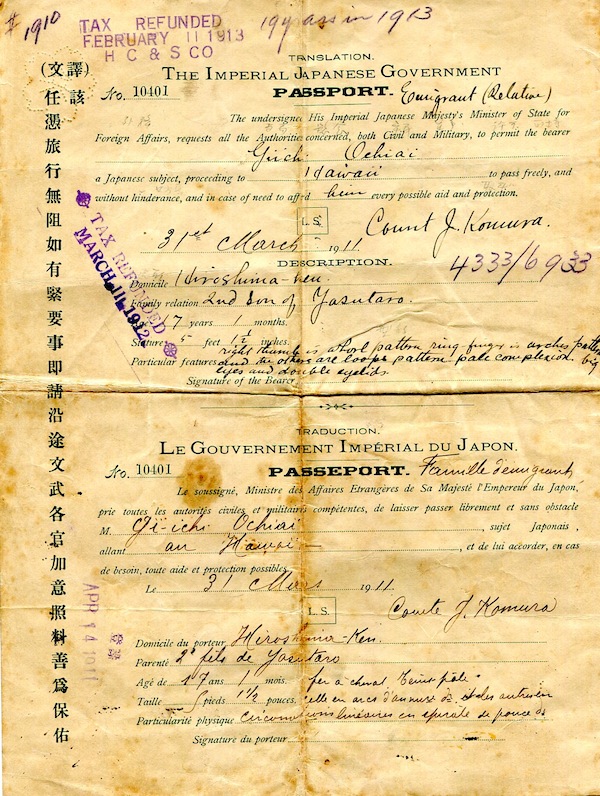 # 1910
TAX REFUNDED
FEBRUARY 11 1913
H C & S CO
19 yrs in 1913
(文譯)
該任憑旅行無阻如有緊要事即請沿途文武各官加意照料善爲保佑
TRANSLATION.
THE IMPERIAL JAPANESE GOVERNMENT
No. 10401 PASSPORT. Emigrant (Relative)
The undersigned His Imperial Japanese Majesty's Minister of State for
Foreign Affairs, requests all the Authorities concerned, both Civil and Military, to permit the bearer
Giichi Ochiai
a Japanese subject, proceeding to Hawaii to pass freely, and
without hinderance, and in case of need to afford him every possible aid and protection.
L. S. Count J. Komura.
31st March 1911.
TAX REFUNDED
MARCH 11 1912
DESCRIPTION.
4333/6933
Domicile Hiroshima-ken.
Family relation 2nd son of Yasutaro.
17 years 1 months.
Stature 5 feet 1½ inches.
right thumb is whorl pattern ring-finger is arches pattern
Particular features and the others are loops pattern. pale complexion. big
eyes and double eyelids.
Signature of the Bearer
TRADUCTION.
LE GOUVERNEMENT IMPÉRIAL DU JAPON.
No. 10401 PASSEPORT. Famille d'emigrant
Le soussigné, Ministre des Affaires Etrangères de Sa Majesté l'Empereur du Japon,
prie toutes les autorités civiles et militaires compétentes, de laisser passer librement et sans obstacle
M. Giichi Ochiai, sujet Japonais,
allant au Hawai, et de lui accorder, en cas
de besoin, toute aide et protection possibles.
Le 31 Mars 1911.
L. S. Comte J. Komura
APR 14 1911
Domicile du porteur Hiroshima-Ken.
Parenté 2e fils de Yasutaro
Agé de 17 ans 1 mois. fer à cheval. Teint pâle.
Taille 5 pieds 1½ pouces. celle en arcs d'
Particularité physique en spirale de pouce
Signature du porteur